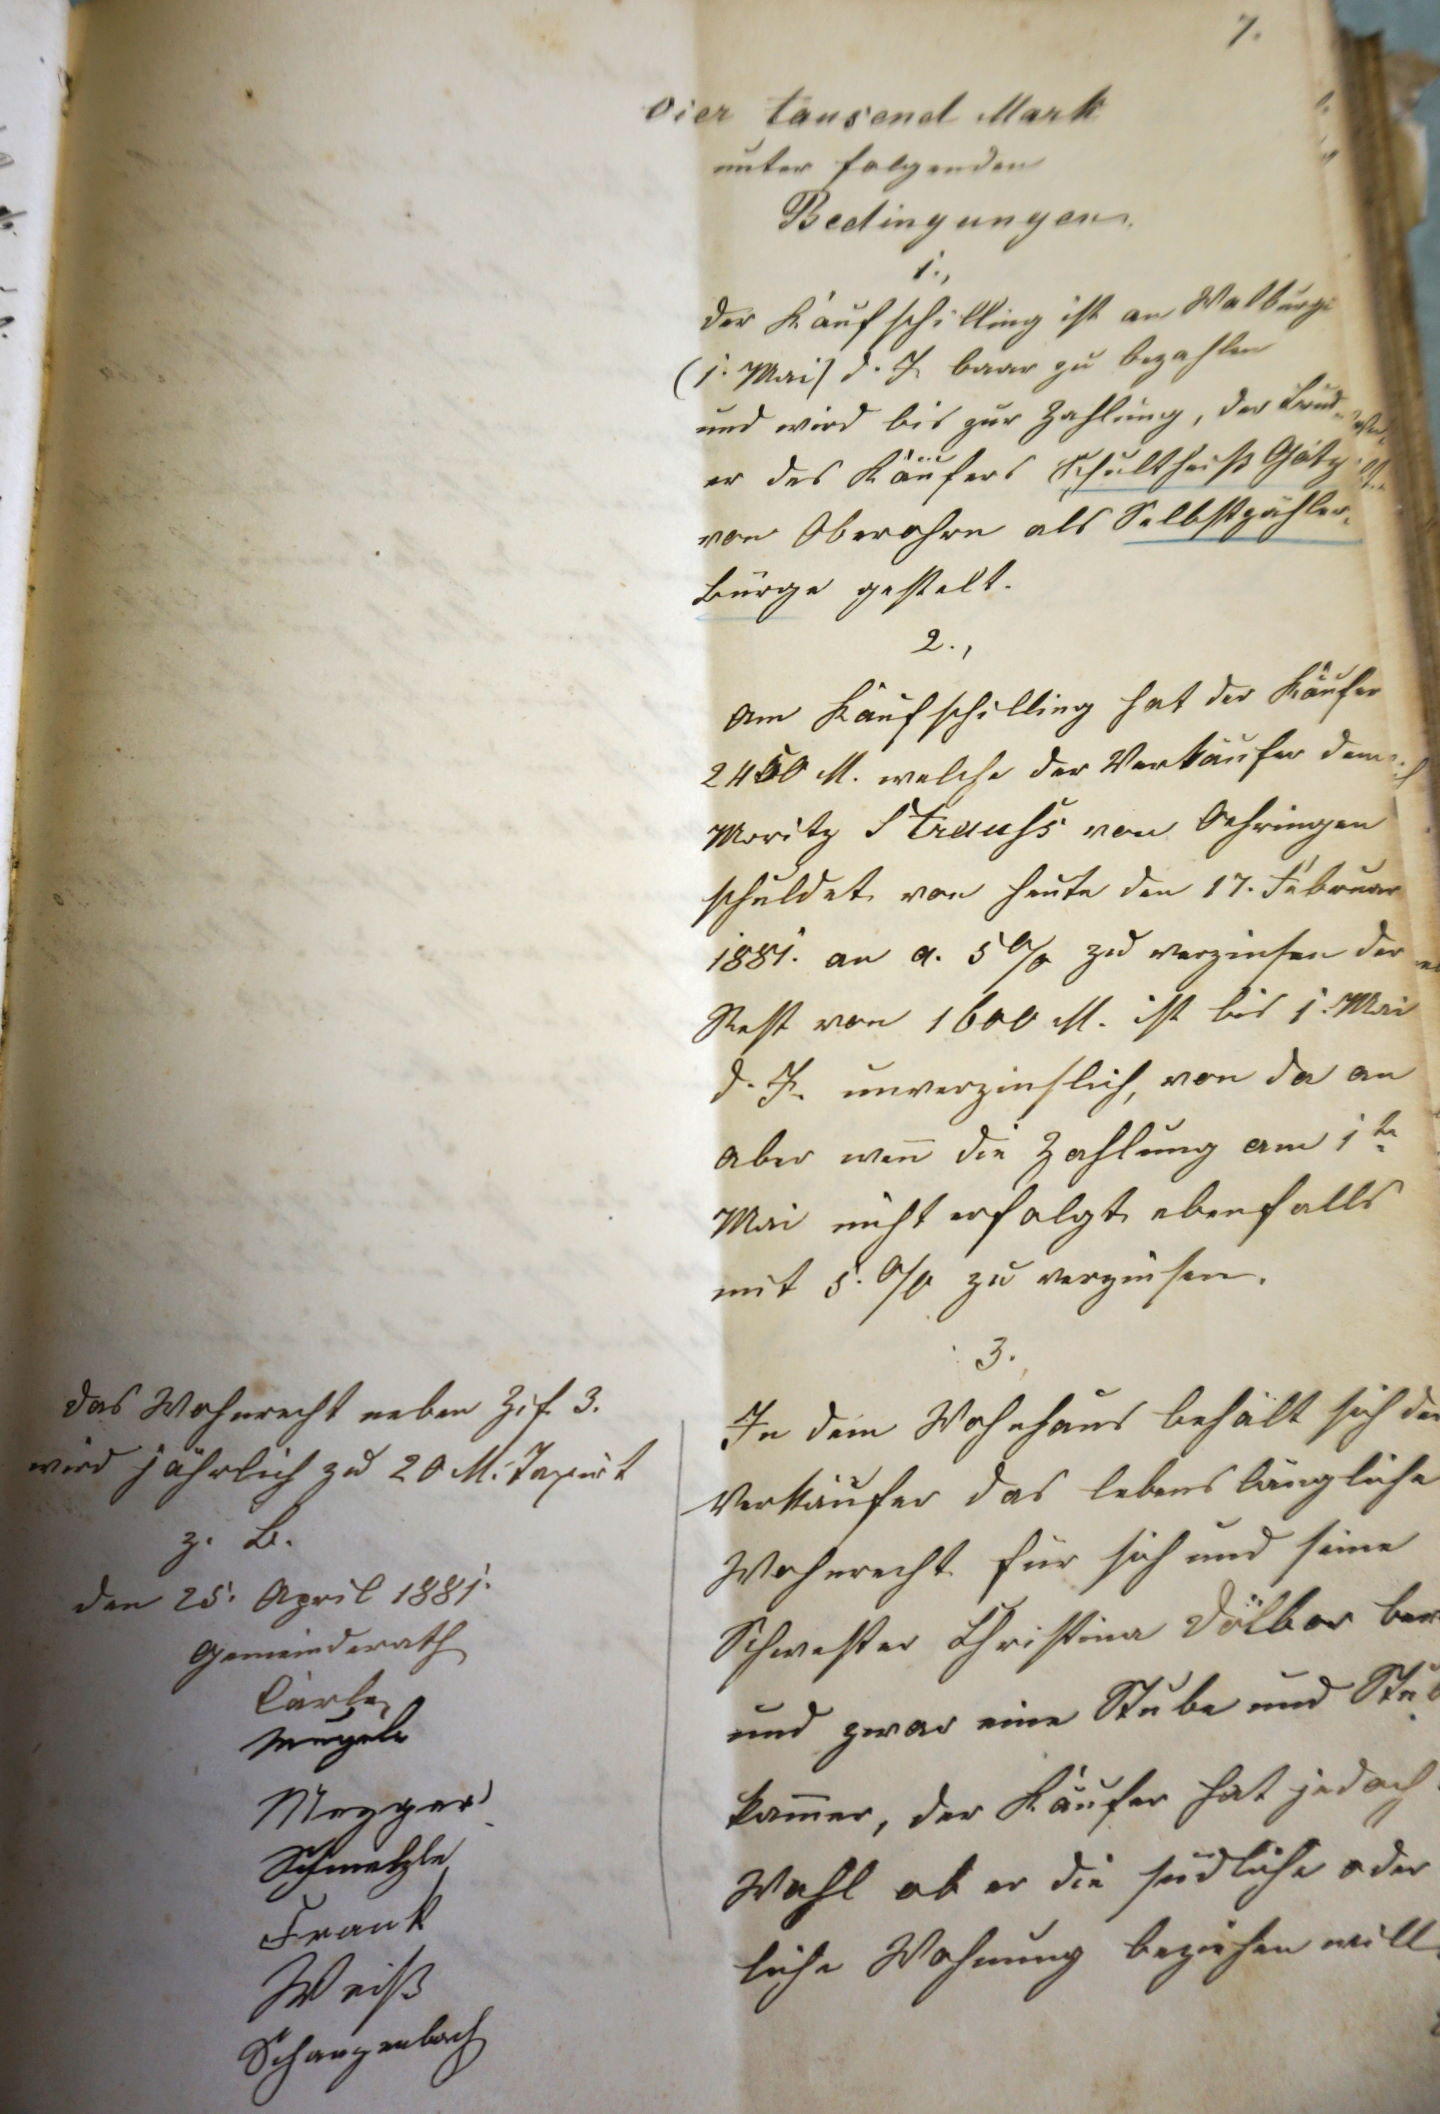 7.
vier tausend Mark
unter folgenden
Bedingungen.
1.,
Der Kaufschilling ist an Walburgi
(1. Mai) d. J. baar zu bezahlen
und wird bis zur Zahlung, der Brud-
er des Käufers Schultheiß Götz
von Oberohrn als Selbstzahler,
Bürge gestelt.
2.,
Am Kaufschilling hat der Käufer
2450 M. welche der Verkäufer dem
Moritz Strauss von Oehringen
schuldet von heute den 17. Februar
1881. an a. 5 % zu verzinsen der
Rest von 1600 M. ist bis 1. Mai
d. J. unverzinslich, von da an
aber wen̄ die Zahlung am 1te
Mai nicht erfolgt ebenfalls
mit 5. % zu verzinsen.
3.
In dem Wohnhaus behält sich der
Verkäufer das lebenslängliche
Wohnrecht für sich und seine
Schwester Christina
und zwar eine Stube und Stub
kam̄er, der Käufer hat jedoch
Wahl ob er die südliche oder
liche Wohnung beziehen will.
Das Wohnrecht neben Zif. 3.
wird jährlich zu 20 M. Taxirt
z. B.
den 25. April 1881.
Gemeinderath
Mezger
Schmelzle
Frank
Weiß